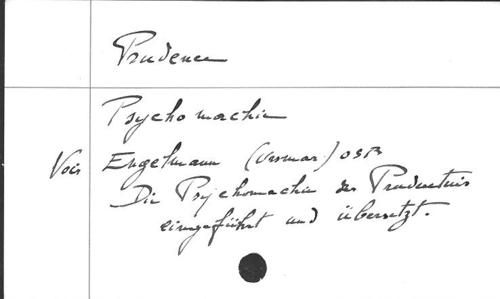 Prudence
Psychomachie
Voir Engelmann (Ursmar) OSB
Die Psychomachie des Prudentius
eingeführt und übersetzt.